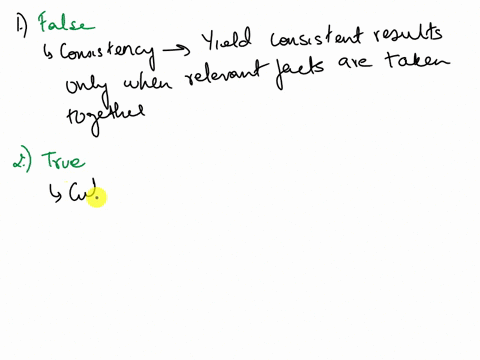 1.) False
↳ Consistency → Yield consistent results
only when relevant facts are taken
together
2.) True